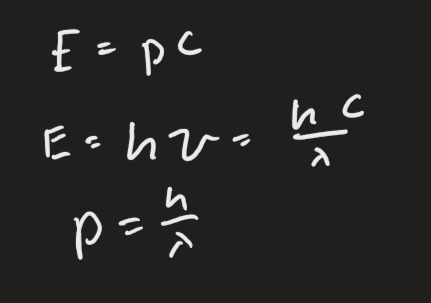 E = pc
E = hν = hc/λ
p = h/λ